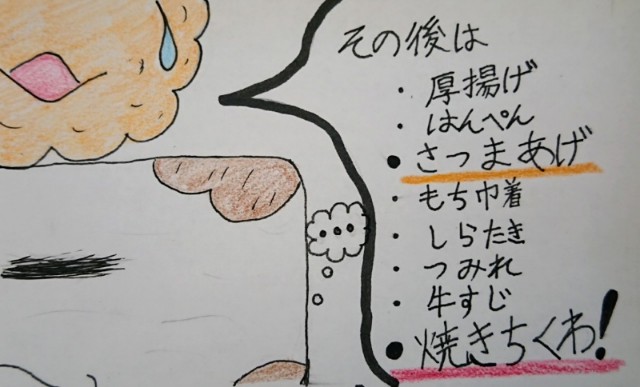 その後は
・厚揚げ
・はんぺん
●さつまあげ
・もち巾着
・しらたき
・つみれ
・牛すじ
●焼きちくわ!
...